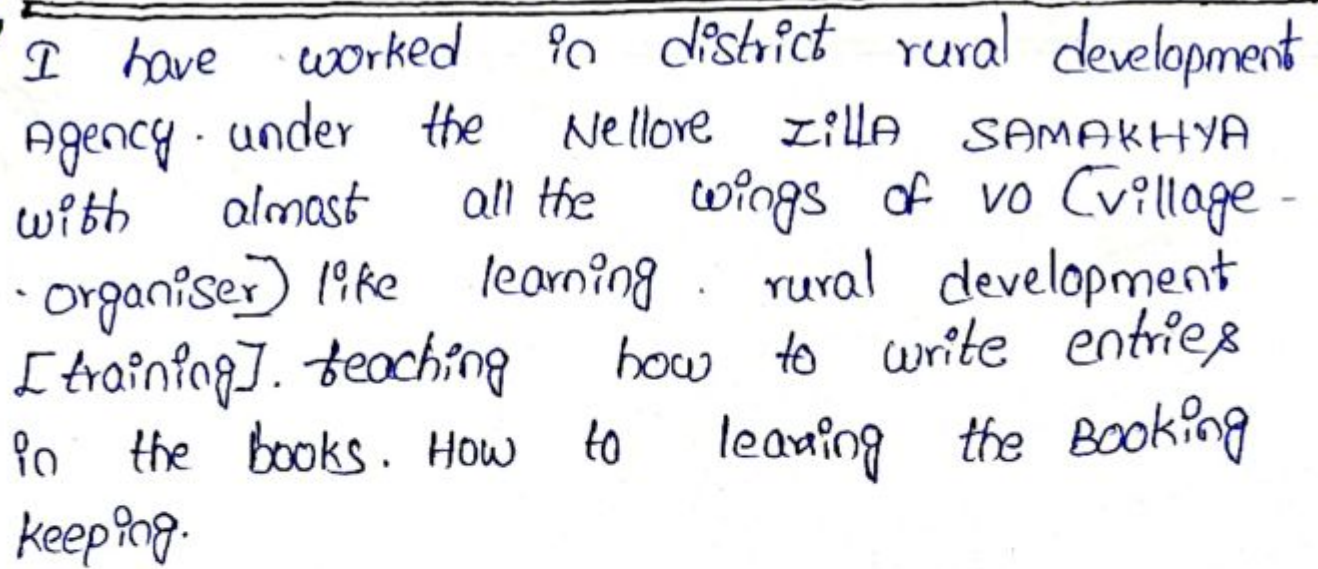 I have worked in district rural development
Agency. under the Nellore ZillA SAMAKHYA
with almost all the wings of VO (village -
- organiser) like learning. rural development
[training]. teaching how to write entries
in the books. How to leaning the Booking
keeping.